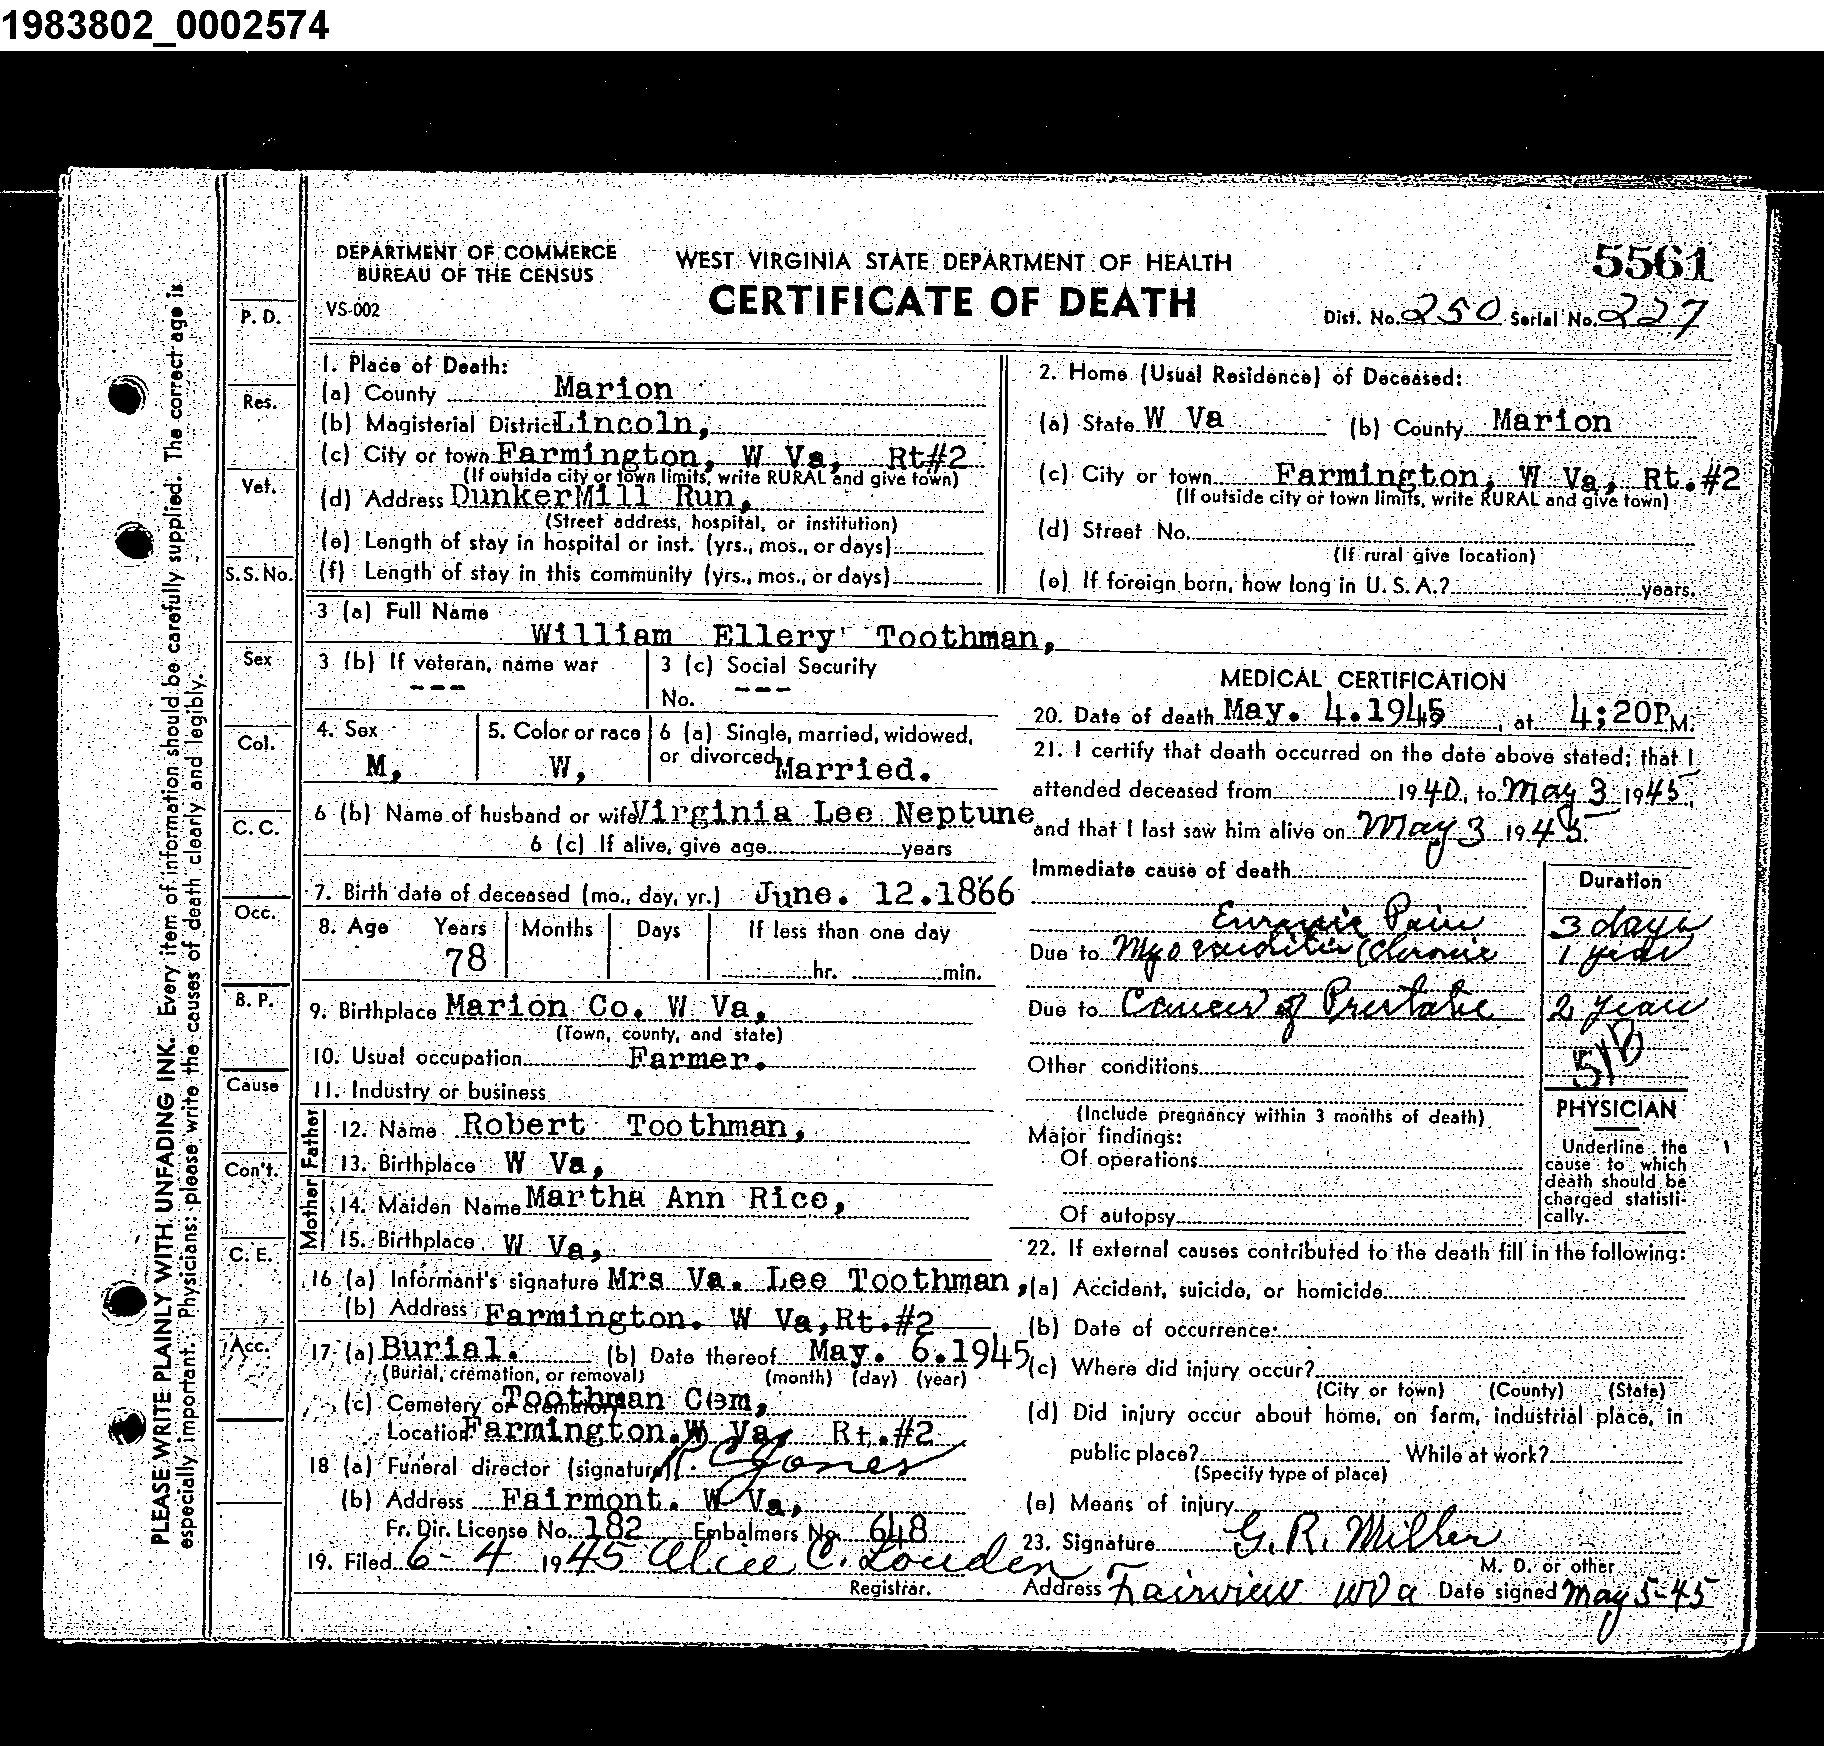 1983802_0002574
DEPARTMENT OF COMMERCE
BUREAU OF THE CENSUS
VS-002
WEST VIRGINIA STATE DEPARTMENT OF HEALTH
CERTIFICATE OF DEATH
5561
Dist. No. 250 Serial No. 227
PLEASE WRITE PLAINLY WITH UNFADING INK. Every item of information should be carefully supplied. The correct age is
especially important. Physicians: please write the causes of death clearly and legibly.
P. D.
Res.
Vet.
S. S. No.
Sex
Col.
C. C.
Occ.
B. P.
Cause
Con't.
C. E.
Acc.
1. Place of Death:
(a) County Marion
(b) Magisterial District Lincoln,
(c) City or town Farmington, W Va, Rt#2
(If outside city or town limits, write RURAL and give town)
(d) Address DunkerMill Run,
(Street address, hospital, or institution)
(e) Length of stay in hospital or inst. (yrs., mos., or days)
(f) Length of stay in this community (yrs., mos., or days)
2. Home (Usual Residence) of Deceased:
(a) State W Va (b) County Marion
(c) City or town Farmington, W Va, Rt.#2
(If outside city or town limits, write RURAL and give town)
(d) Street No.
(If rural give location)
(e) If foreign born, how long in U. S. A.? years.
3 (a) Full Name
William Ellery Toothman,
3 (b) If veteran, name war
---
3 (c) Social Security
No. ---
4. Sex
M,
5. Color or race
W,
6 (a) Single, married, widowed,
or divorced Married.
6 (b) Name of husband or wife Virginia Lee Neptune
6 (c) If alive, give age years
7. Birth date of deceased (mo., day, yr.) June. 12.1866
8. Age Years Months Days If less than one day
78 hr. min.
9. Birthplace Marion Co. W Va,
(Town, county, and state)
10. Usual occupation Farmer.
11. Industry or business
Father
12. Name Robert Toothman,
13. Birthplace W Va,
Mother
14. Maiden Name Martha Ann Rice,
15. Birthplace W Va,
16 (a) Informant's signature Mrs Va. Lee Toothman,
(b) Address Farmington. W Va,Rt.#2
17 (a) Burial. (b) Date thereof May. 6.1945
(Burial, cremation, or removal) (month) (day) (year)
(c) Cemetery or crematory Toothman Cem,
Location Farmington.W Va, Rt.#2
18 (a) Funeral director (signature) Jones
(b) Address Fairmont. W Va,
Fr. Dir. License No. 182 Embalmers No. 648
19. Filed 6-4 1945 Alice C. Louden
Registrar.
MEDICAL CERTIFICATION
20. Date of death May. 4.1945, at 4;20P M.
21. I certify that death occurred on the date above stated; that I
attended deceased from 1940, to May 3 1945,
and that I last saw him alive on May 3 1945.
Immediate cause of death
Duration
Pain 3 days
Due to Myocarditis (Chronic 1 year
Due to Cancer of Prostate 2 years
51B
Other conditions
(Include pregnancy within 3 months of death)
Major findings:
Of operations
Of autopsy
PHYSICIAN
Underline the
cause to which
death should be
charged statisti-
cally.
22. If external causes contributed to the death fill in the following:
(a) Accident, suicide, or homicide
(b) Date of occurrence:
(c) Where did injury occur?
(City or town) (County) (State)
(d) Did injury occur about home, on farm, industrial place, in
public place? While at work?
(Specify type of place)
(e) Means of injury
23. Signature G. R. Miller
M. D. or other
Address Fairview WVa Date signed May 5-45